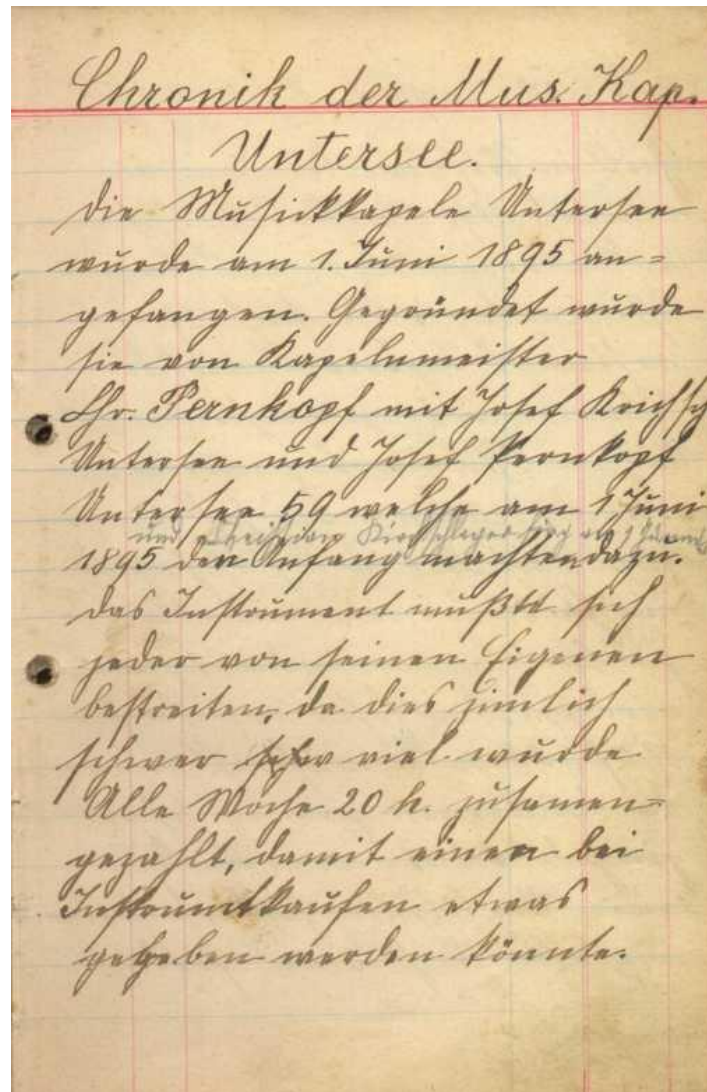 Chronik der Mus. Kap.
Untersee.
Die Musickkapele Untersee
wurde am 1. Juni 1895 an=
gefangen. Gegründet wurde
sie von Kapelnmeister
Chr. Pernkopf mit Josef
Untersee und Josef Pernkopf
Untersee 59 welche am 1 Juni
und Kirchschlager
1895 den Anfang machten dazu.
Das Instrument mußte sich
jeder von seinen Eigenen
bestreiten, da dies zimlich
schwer viel wurde
Alle Woche 20 h. zusamen=
gezahlt, damit einen bei
Instrumtkaufen etwas
gegeben werden könnte.